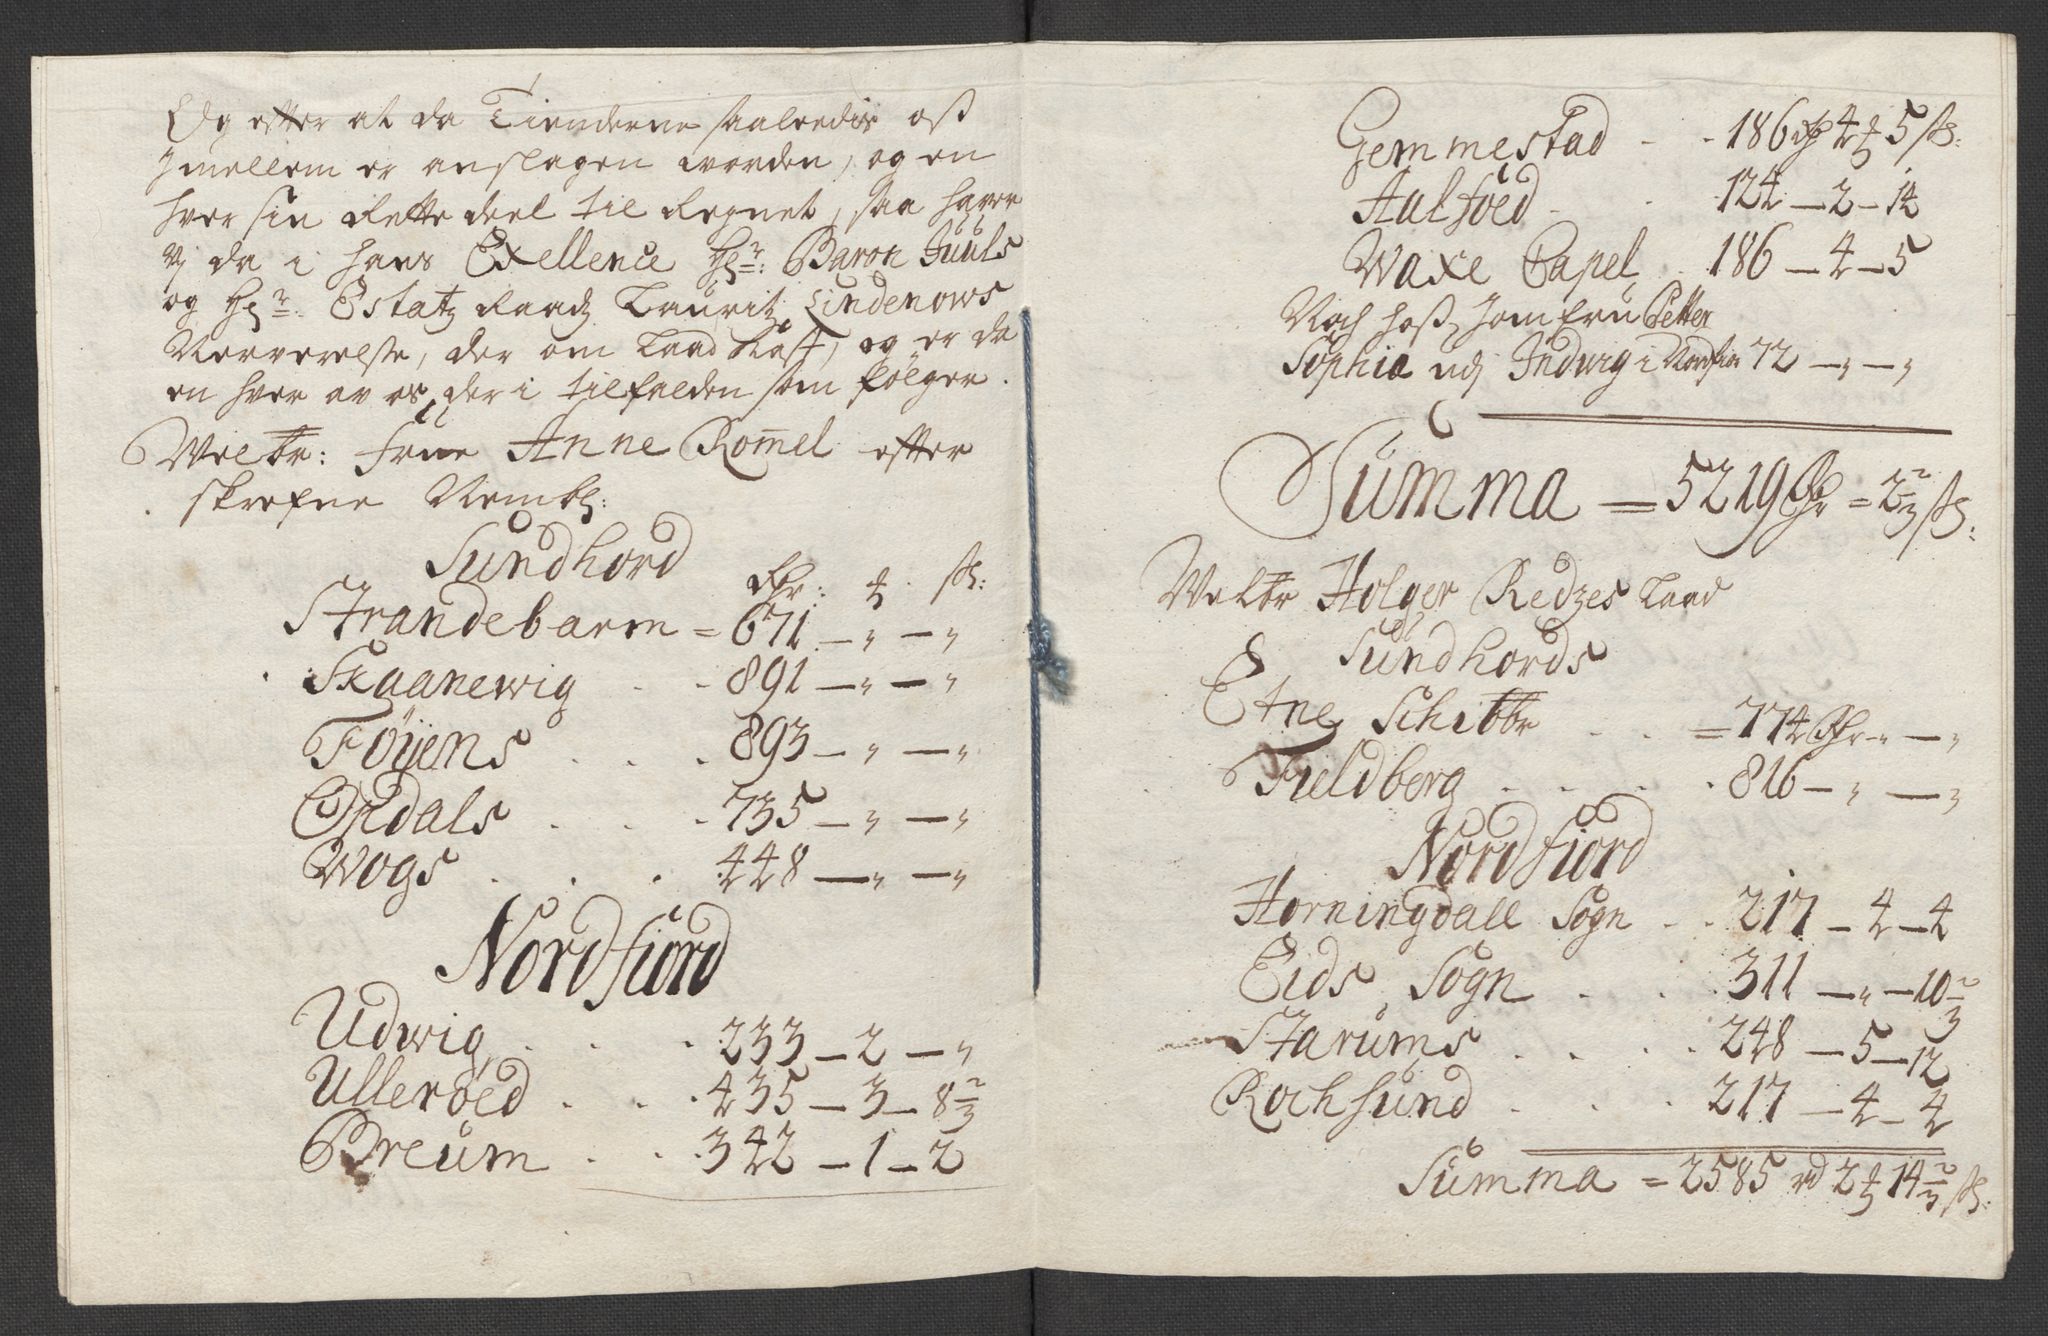 Og efter at da Tienderne saaledis oss
Jmellem er anslagen worden, og en
hver sin Rette deel til Regnet, saa haver
Vj da i hans Exellence Hr: Baron Juuls
og Hr: Estatz Raadz Lauritz Lindenows
Nerverelse, der om Laad Kast, og er da
en hver av os der i tilfalden som følger.
Welbr: Frue Anne Rom̄el efter
skrefne Nembl:
Sundhord
Rdr: ₰ ß:
Strandebarm = 671 — „ — „
Skaanewig . . 891 — „ — „
Føyens . . . 893 — „ — „
Opdals . . . 735 — „ — „
Wogs . . . 448 — „ — „
Nordfiord
Udwig . . . 233 — 2 — „
Ulleroed . . . 435 — 3 — 8 2/3
Breum . . . 342 — 1 — 2
Gemmestad . . 186 Rdr 4 ₰ 5 ß:
Aalfoed . . 124 — 2 — 14
Waxe Capel . 186 — 4 — 5
Noch hoss Jomfru Petter
Sophia udj Indwig i Nordfior 72 — „ — „
Summa = 5219 Rdr = 2 2/3 ß:
Welbr Holger Redzes Laad
Sundhords
Etne Schibbr . . = 774 Rdr „ — „
Fieldberg . . . . 816 — „ — „
Nordfiord
Horningdall Sogn . . 217 — 4 — 4
Eids Sogn . . . 311 — „ — 10 2/3
Starums . . . . 248 — 5 — 12
Rochsund . . . 217 — 4 — 4
Summa = 2585 rd 2 ₰ 14 2/3 ß: